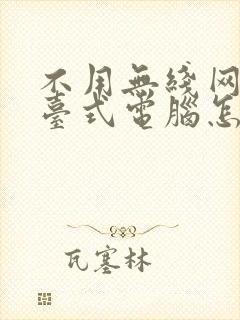 不用無綫网
臺式電腦怎
瓦塞林